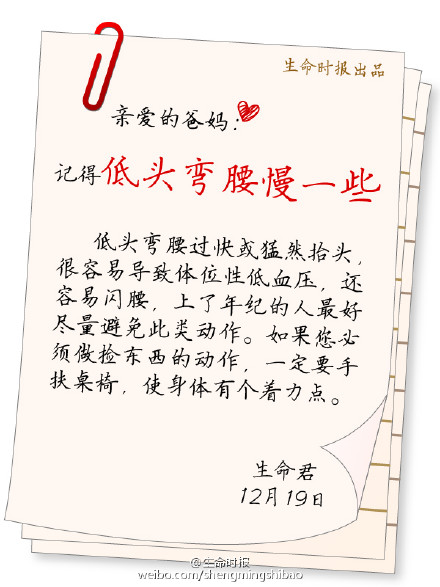 生命时报出品
亲爱的爸妈：
记得低头弯腰慢一些
低头弯腰过快或猛然抬头，
很容易导致体位性低血压，还
容易闪腰，上了年纪的人最好
尽量避免此类动作。如果您必
须做捡东西的动作，一定要手
扶桌椅，使身体有个着力点。
生命君
12月19日
@生命时报
weibo.com/shengmingshibao